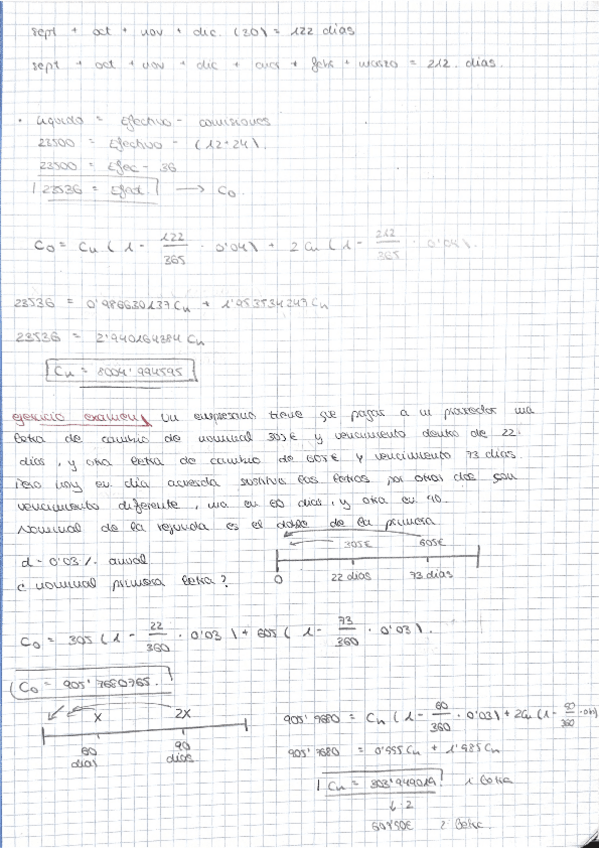 sept + oct + nov + dic. (20) = 122 dias
sept + oct + nov + dic + + febr + marzo = 212. dias.
• liquido = Efectivo - comisiones
23500 = Efectivo - (12+24).
23500 = Efec - 36
23536 = Efect → Co.
Co = Cn ( 1 - 122/365 · 0'04) + 2Cn ( 1 - 212/365 · 0'04).
23536 = 0'986630137 Cn + 1'953534247 Cn
23536 = 2'940164384 Cn
Cn = 8004'994595
ejercicio examen Un empresario tiene que pagar a un proveedor una
letra de cambio de nominal 305€ y vencimiento dentro de 22
dias, y otra letra de cambio de 605€ y vencimiento 73 dias.
Pero hoy en dia acuerda sustituir las letras por otras dos con
vencimiento diferente, una en 60 dias, y otra en 90.
Nominal de la segunda es el doble de la primera
d = 0'03 % anual
c nominal primera letra?
305€ 605€
0 22 dias 73 dias
Co = 305 ( 1 - 22/360 · 0'03) + 605 ( 1 - 73/360 · 0'03).
Co = 905'7680765.
X 2X
60 dias 90 dias
905'7680 = Cn ( 1 - 60/360 · 0'03) + 2Cn ( 1 - 90/360 ·
905'7680 = 0'995Cn + 1'985Cn
Cn = 303'949019 1 letra
↓·2
2 letra.